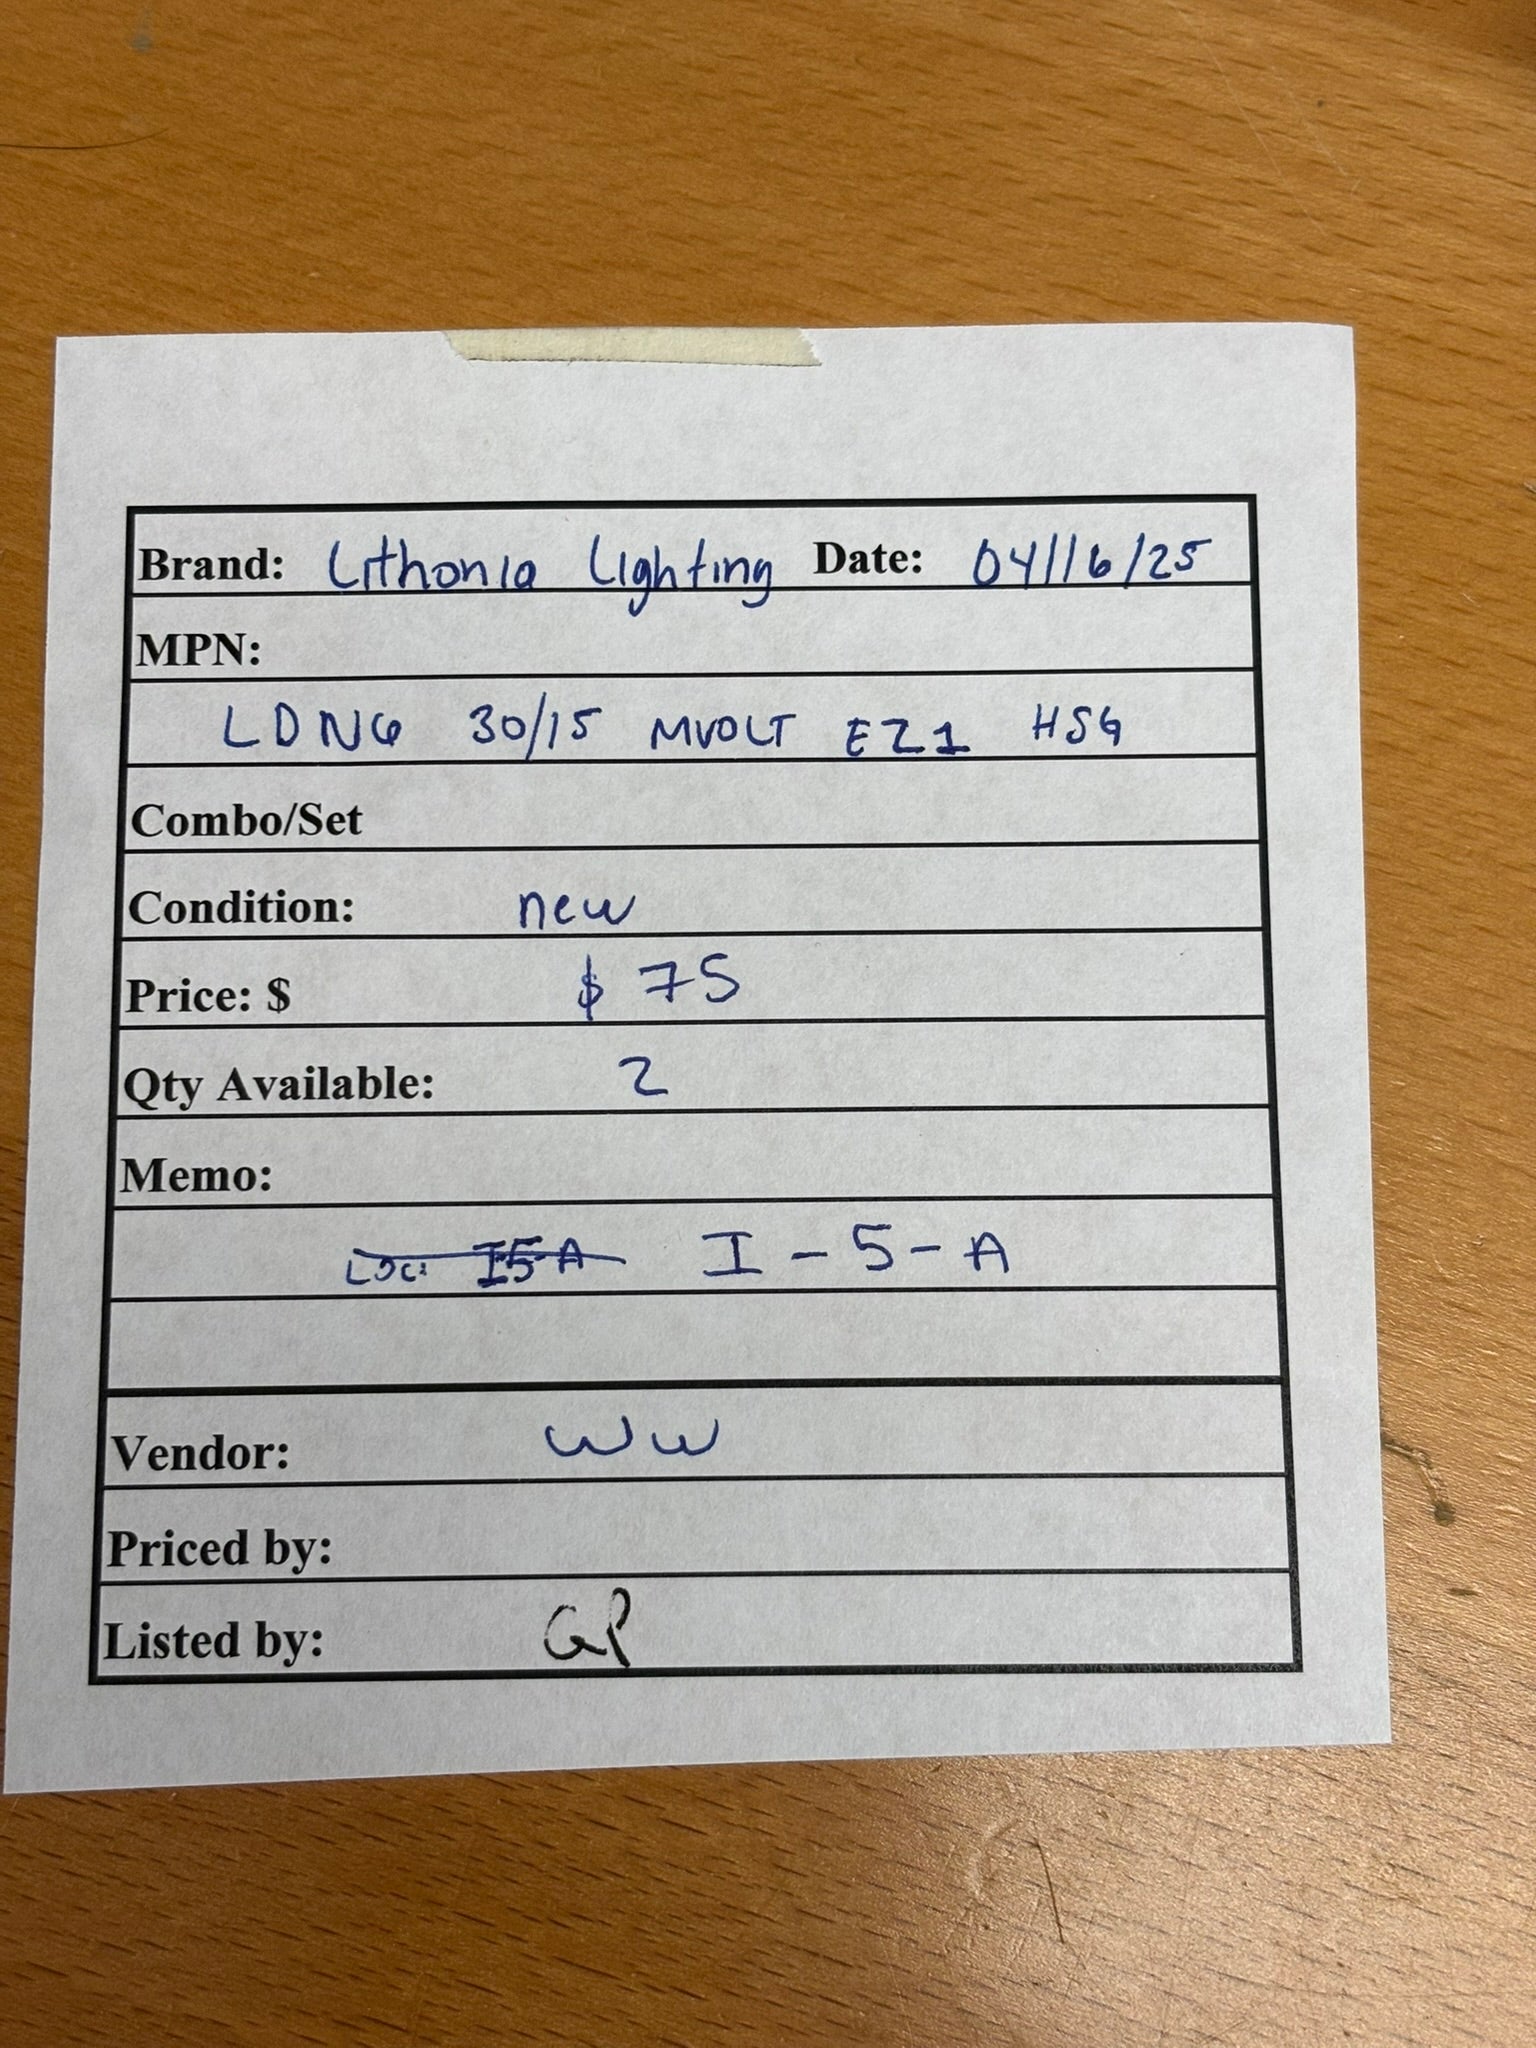 Brand: Lithonia Lighting Date: 04/16/25
MPN:
LDN6 30/15 MVOLT EZ1 HSG
Combo/Set
Condition: new
Price: $ $ 75
Qty Available: 2
Memo:
Loc: I5A I - 5 - A
Vendor: WW
Priced by:
Listed by: GP